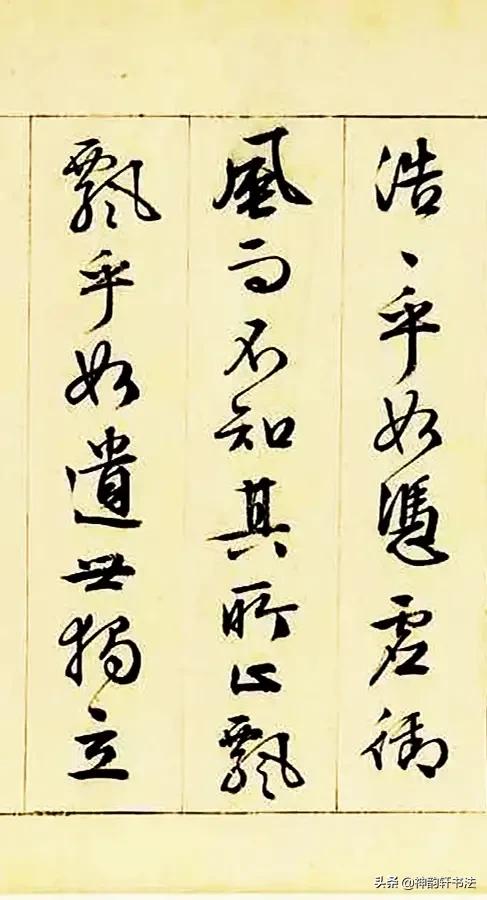 浩々乎如憑虛御
風而不知其所止飄
飄乎如遺世獨立
头条 @神韵轩书法